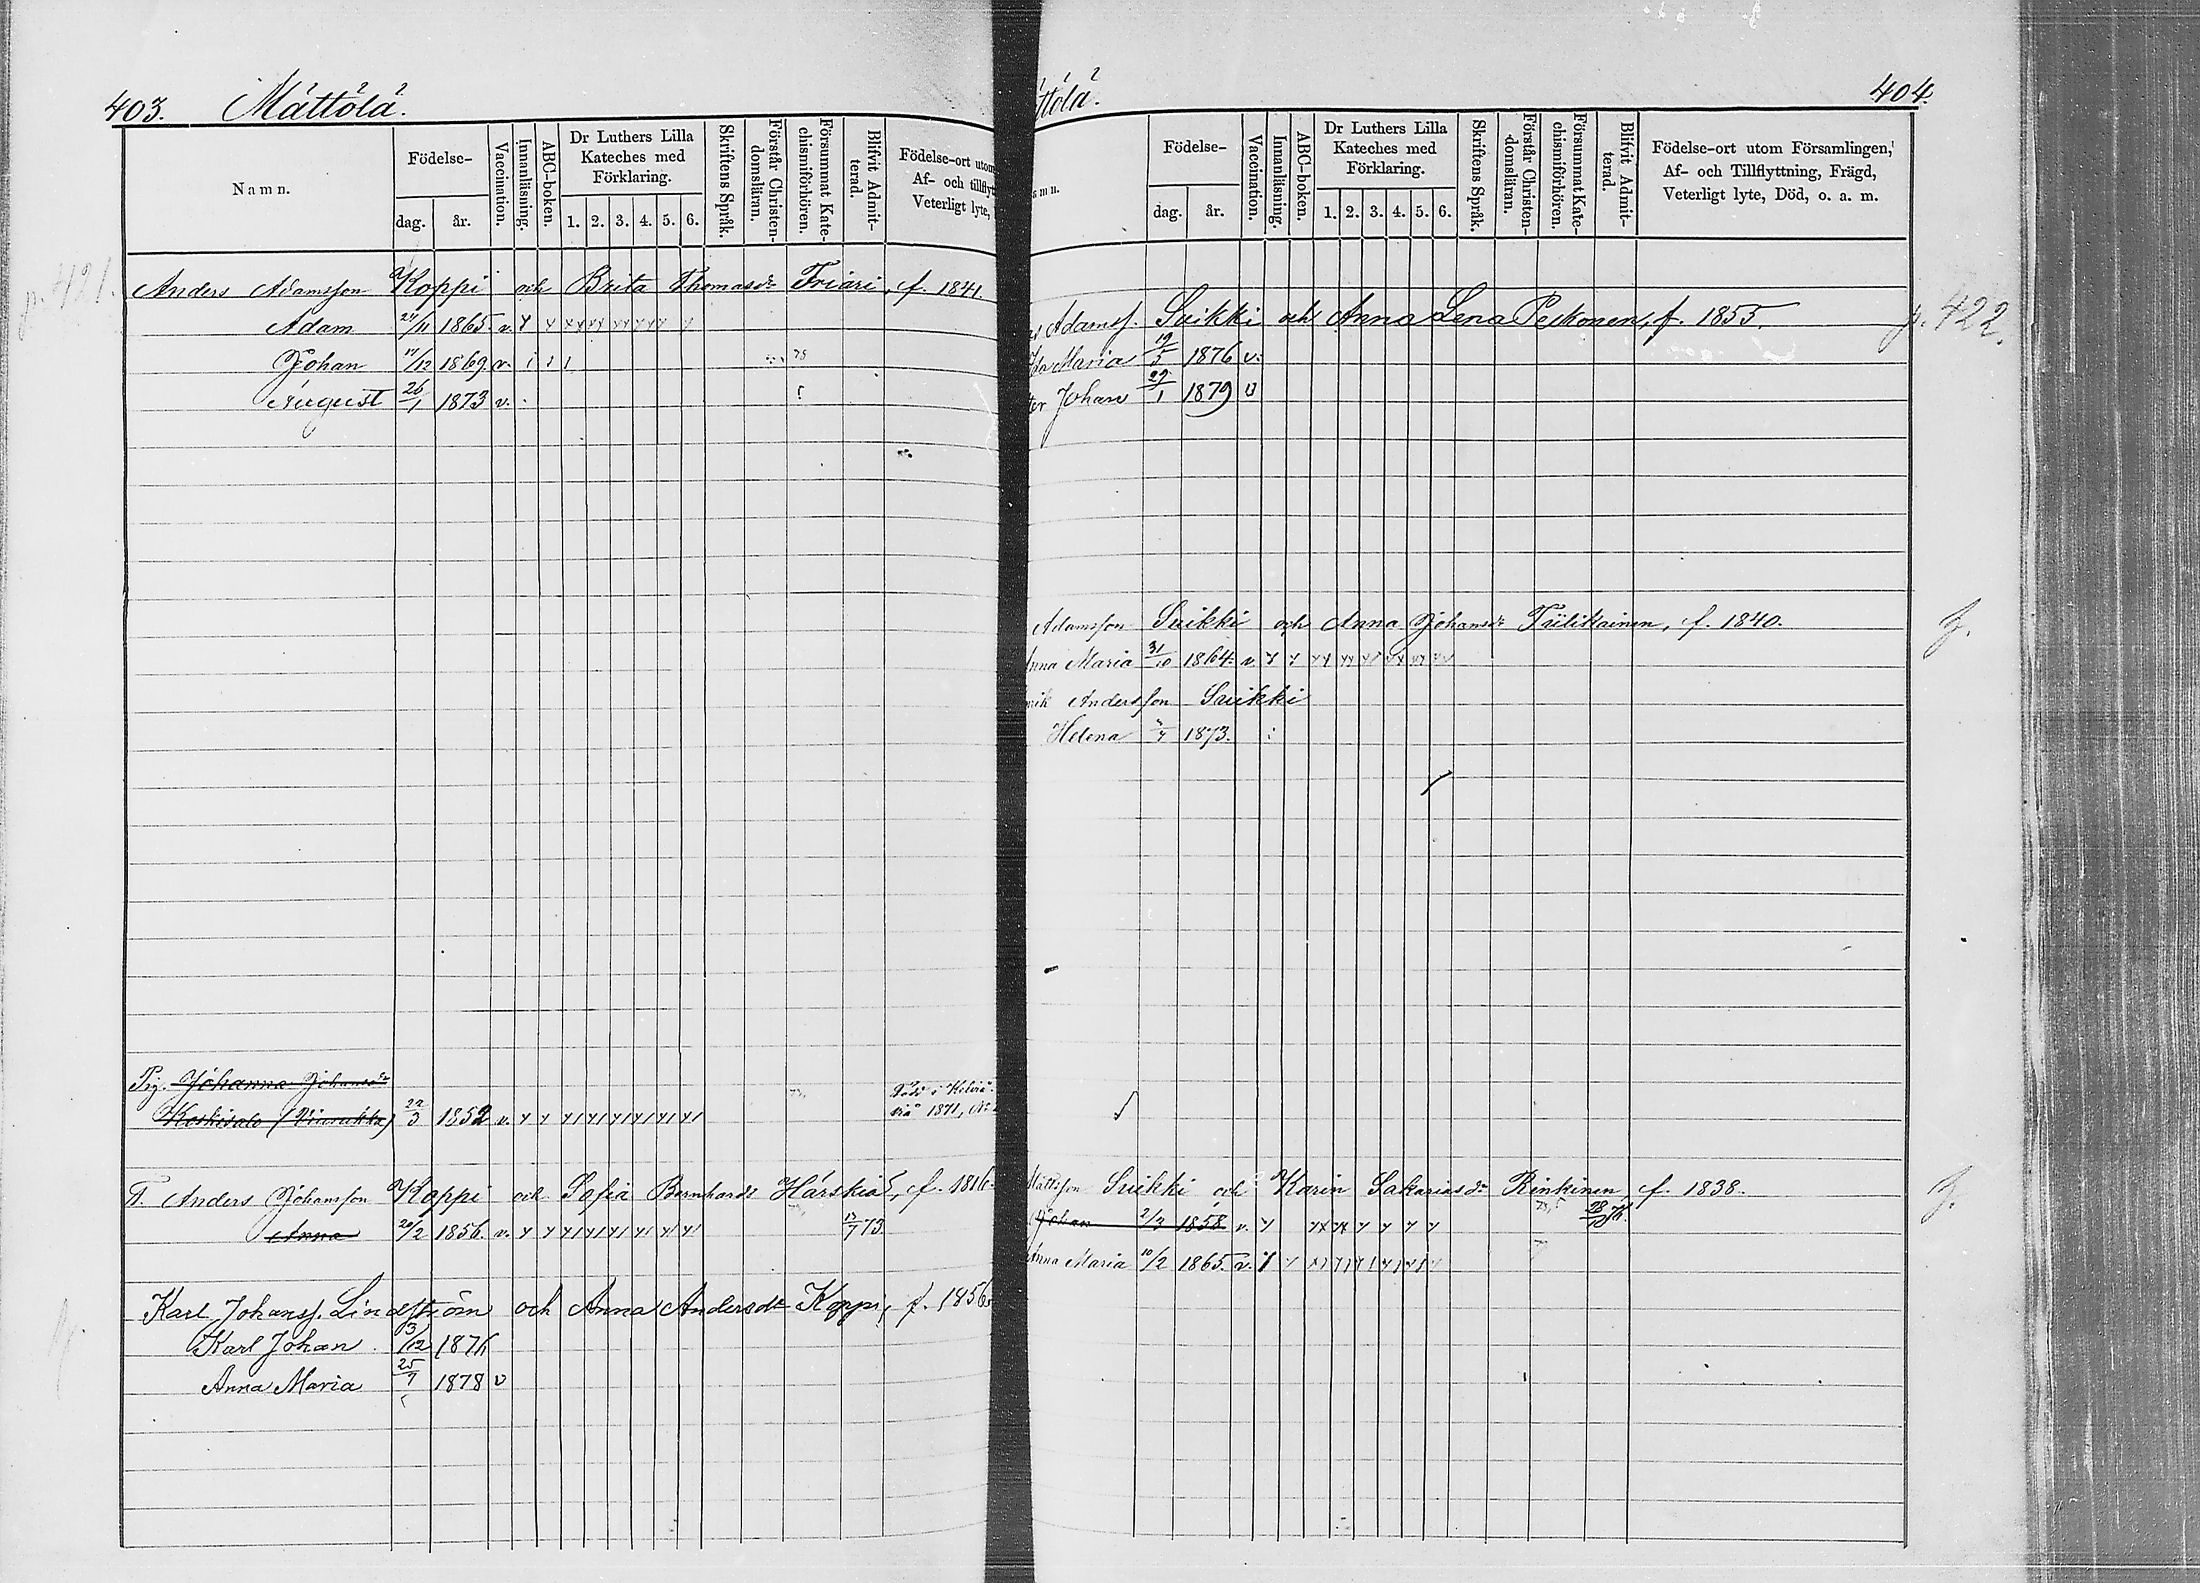 403. Mättölä.
Namn.
Födelse-
dag. år.
Vaccination.
Innanläsning.
ABC-boken.
Dr Luthers Lilla
Kateches med
Förklaring.
1. 2. 3. 4. 5. 6.
Skriftens Språk.
Förstår Christen-
domsläran.
Försummat Kate-
chismiförhören.
Blifvit Admit-
terad.
Födelse-ort utom
Af- och tillflyt
Veterligt lyte,
p. 421.
Anders Adamsson Koppi och Brita Thomasdr Friari, f. 1841.
Adam 21/11 1865. v.
Johan 11/12 1869. v.
August 26/1 1873 v.
Pig. Johanna Johansdr
Koskisalo 22/3 1852 v.
Född i
1871,
T. Anders Johansson Koppi och Sofia Bernhardr Härskiä, f. 1816.
Anna 20/2 1856. v. 73.
Karl Johanss. Lindström och Anna Andersdr Koppi, f. 1856
Karl Johan 3/12 1876
Anna Maria 25/7 1878 v
ttölä. 404.
mn.
Födelse-
dag. år.
Vaccination.
Innanläsning.
ABC-boken.
Dr Luthers Lilla
Kateches med
Förklaring.
1. 2. 3. 4. 5. 6.
Skriftens Språk.
Förstår Christen-
domsläran.
Försummat Kate-
chismiförhören.
Blifvit Admit-
terad.
Födelse-ort utom Församlingen,
Af- och Tillflyttning, Frägd,
Veterligt lyte, Död, o. a. m.
Adamss. Suikki och Anna Lena Peskonen, f. 1855. p. 422.
Maria 19/5 1876 v.
ter Johan 29/1 1879 v
Adamsson Suikki och Anna Johansdr Tiilikainen, f. 1840.
nna Maria 31/10 1864. v.
rik Andersson Suikki
Helena 1873.
Mattsson Suikki och Karin Sakariasdr Rinkinen, f. 1838.
Johan 2/3 1858. v. 76.
Anna Maria 10/2 1865. v.